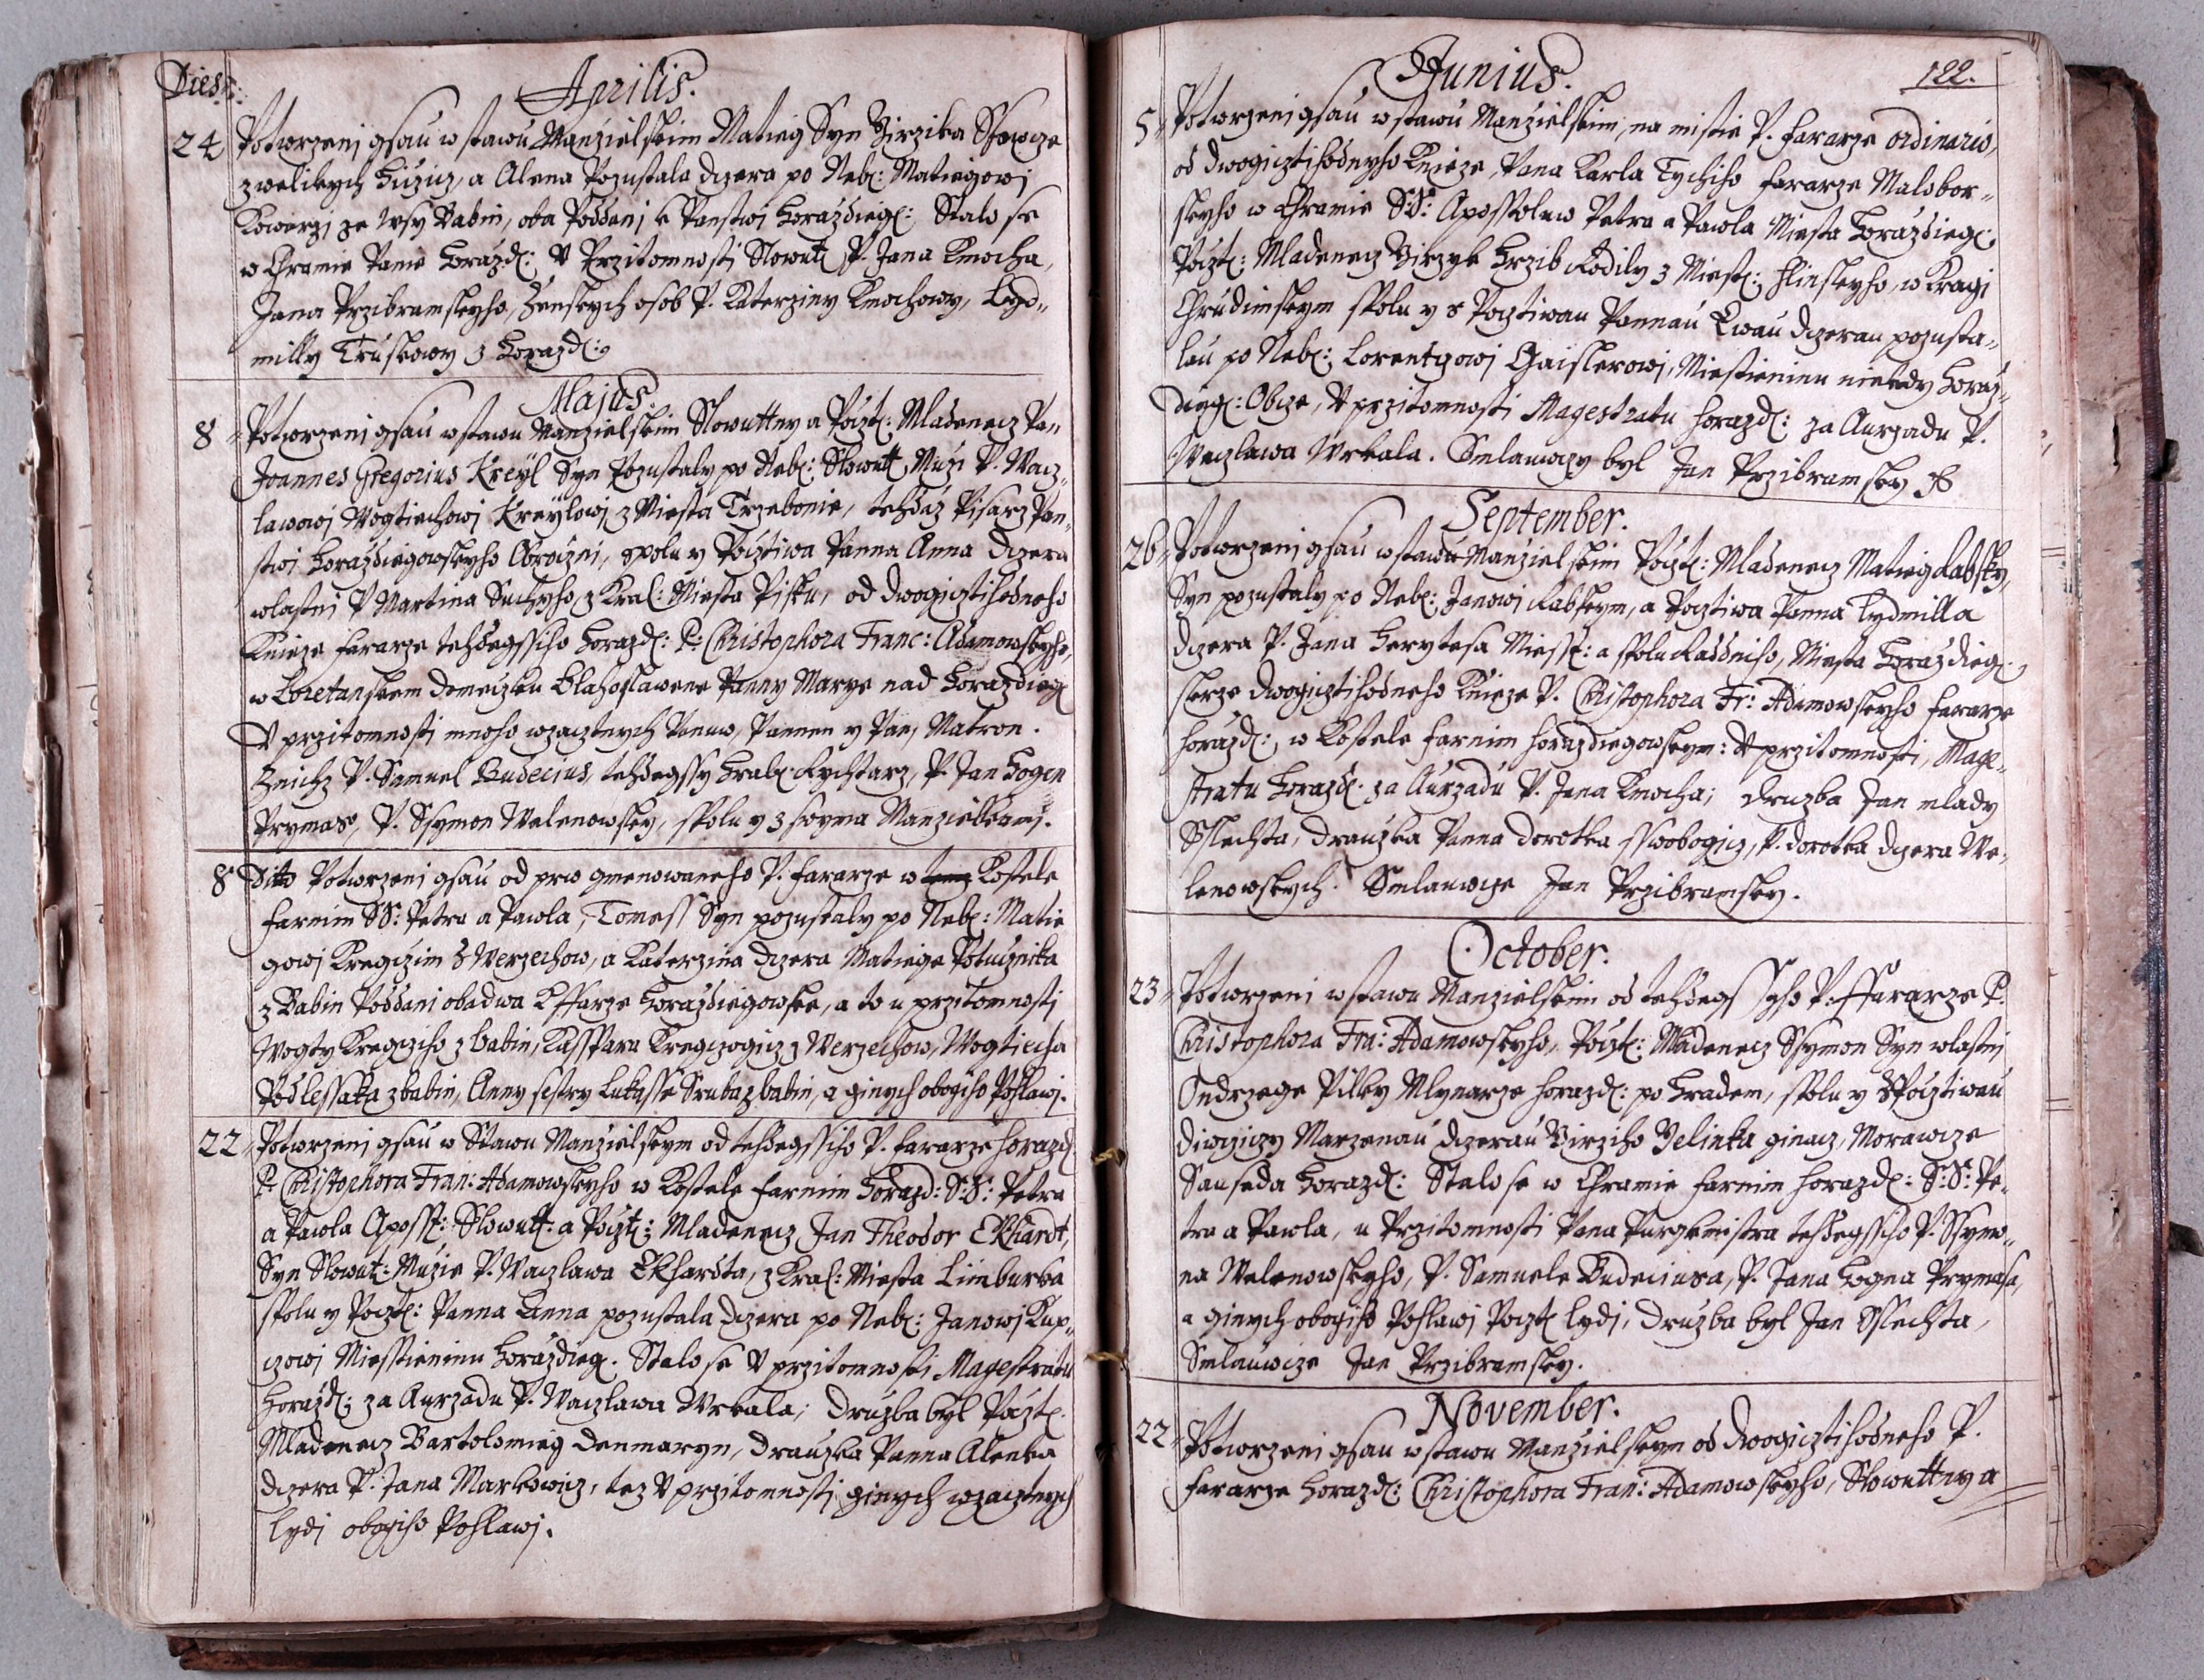 Dies.
Aprilis.
24 Potwrzeni gsau w stawu Manzielskim Matieg Syn Girzika Ssewcze
z welikych Huzicz, a Alena Pozustala dczera po Neb: Matiegowi
Kowarzi ze wsy Babin, oba Poddani k Panstwi Horazdieg: Stalo se
w Chramie Panie Horazd: V Przitomnosti Slowut P. Jana Knocha,
Jana Przibramskyho, Zenskych osob P. Katerziny Knochowy, Lyd„
milly Truskowy z Horazd:
Majus.
8 Potwrzeni gsau w stawu Manzielskim Slowuttny a Poczt: Mladenecz Pan
Joannes Gregorius Kreyl Syn Pozustaly po Neb: Slowutt Muzi P. Wacz„
lawowi Wogtiechowi Kreylowi z Miesta Trzebonie, tehdaz Pisarz Pan„
stwi Horazdiegowskyho Obroczni, spolu y Pocztiwa Panna Anna dczera
wlastni P Martina Suchyho z Kral: Miesta Pisku, od dwogicztihodneho
Knieze fararze tehdegssiho Horazd: P. Christophora Franc: Adamowskyho,
w Loretanskem domeczku Blahoslawene Panny Marye nad Horazdieg
V przitomnosti mnoho wzacznych Panuw, Pannen y Pan, Matron.
Zeichz P. Samuel Budecius, tehdegssy Hrab: Rychtarz, P. Jan Hogen
Prymas, P. Ssymon Welenowsky, spolu y z swyma Manzielkami.
8 Ditto Potwrzeni gsau od prw gmenowaneho P. fararze w Kostele
farnim SS: Petra a Pawla, Tomess Syn pozustaly po Neb: Matie
gowi Kregczim z Werzechow, a Katerzina dczera Matiege Potucznika
z Babin Poddani obadwa k ffarze Horazdiegowske, a to u przitomnosti
Wogty Kregcziho z babin, Kassparu Kregczogicz z Werzechow, Wogtiecha
Podlessaka z babin, Anny sestry Lukasse Sruba z babin, a ginych obogiho Pohlawi.
22 Potwrzeni gsau w Stawu Manzielskym od tehdegssiho P. fararze Horazd.
P. Christophora Fran: Adamowskyho w Kostele farnim Horazd: S:S: Petra
a Pawla Aposst: Slowutt: a Poczt: Mladenecz Jan Theodor Ekhardt,
Syn Slowut: Muzie P. Waczlawa Ekhardta, z Kral: Miesta Limburka
spolu y Poczt: Panna Anna pozustala dczera po Neb: Janowi Kup„
czowi Miesstieninu Horazdieg. Stalo se V przitomnosti Magestratu
Horazd: za Aurzadu P. Waczlawa Wrkala; Druzba byl Poczt.
Mladenecz Bartolomieg Denmaryn, drauzka Panna Alenka
dczera P. Jana Markowicz, tez V przitomnosti ginych wzacznych
lydi obogiho Pohlawi.
122.
Junius.
5 Potwrzeni gsau w stawu Manzielskim, na mistie P. fararze ordinaris,
od dwogicztihodnyho Knieze, Pana Karla Tychiho fararze Malobor„
skyho w Chramie S:S: Apostoluw Petra a Pawla Miesta Horazdieg:
Poczt: Mladenecz Girzyk Hrzib Rodily z Miest: Hlinskyho, w Kragi
Chrudimskym spolu y s Pocztiwau Pannau Ewau dczerau pozusta„
lau po Neb: Lorentzowi Gaislerowi, Miestieninu niekdy Horaz„
dieg: Obcze, V przitomnosti Magestratu horazd: za Aurzadu P.
Waczlawa Wrkala. Smlauwczy byl Jan Przibramsky
September.
26 Potwrzeni gsau w stawu Manzielskim Poczt: Mladenecz Matieg Rabsky,
Syn pozustaly po Neb: Janowi Rabskym, a Pocztiwa Panna Lydmilla
dczera P. Jana Herytesa Miesst: a spolu Raddniho, Miesta Horazdieg:
skrze dwogicztihodneho Knieze P. Christophora Fr: Adamowskyho fararze
horazd:, w Kostele farnim horazdiegowskym: V przitomnosti, Mage„
stratu Horazd: za Aurzadu P. Jana Knocha; druzba Jan mlady
Sslechta, drauzka Panna dorotka sswobogicz, P. dorotka dczera We„
lenowskych. Smlauwcze Jan Przibramsky.
October.
23 Potwrzeni w stawu Manzielskim od tehdegssyho P. ffararze P.
Christophora Fra: Adamowskyho, Poczt: Mladenecz Ssymon Syn wlastni
Ondrzege Pilky Mlynarze horazd: po Hradem, spolu y s Pocztiwau
diwcziczy Marzenau dczerau Girziho Yelinka ginacz Morawcze
Sauseda Horazd: Stalo se w Chramie farnim horazd: S:S: Pe„
tra a Pawla, u Przitomnosti Pana Purgkmistra tehdegssiho P. Ssymo„
na Welenowskyho, P. Samuele Budeciusa, P. Jana Hogna Prymasa,
a ginych obogiho Pohlawi Poczt lydi, druzba byl Jan Sslechta,
Smlauwcze Jan Przibramsky.
November.
22 Potwrzeni gsau w stawu Manzielskym od dwogicztihodneho P.
fararze Horazd: Christophora Fran: Adamowskyho, Slowuttny a